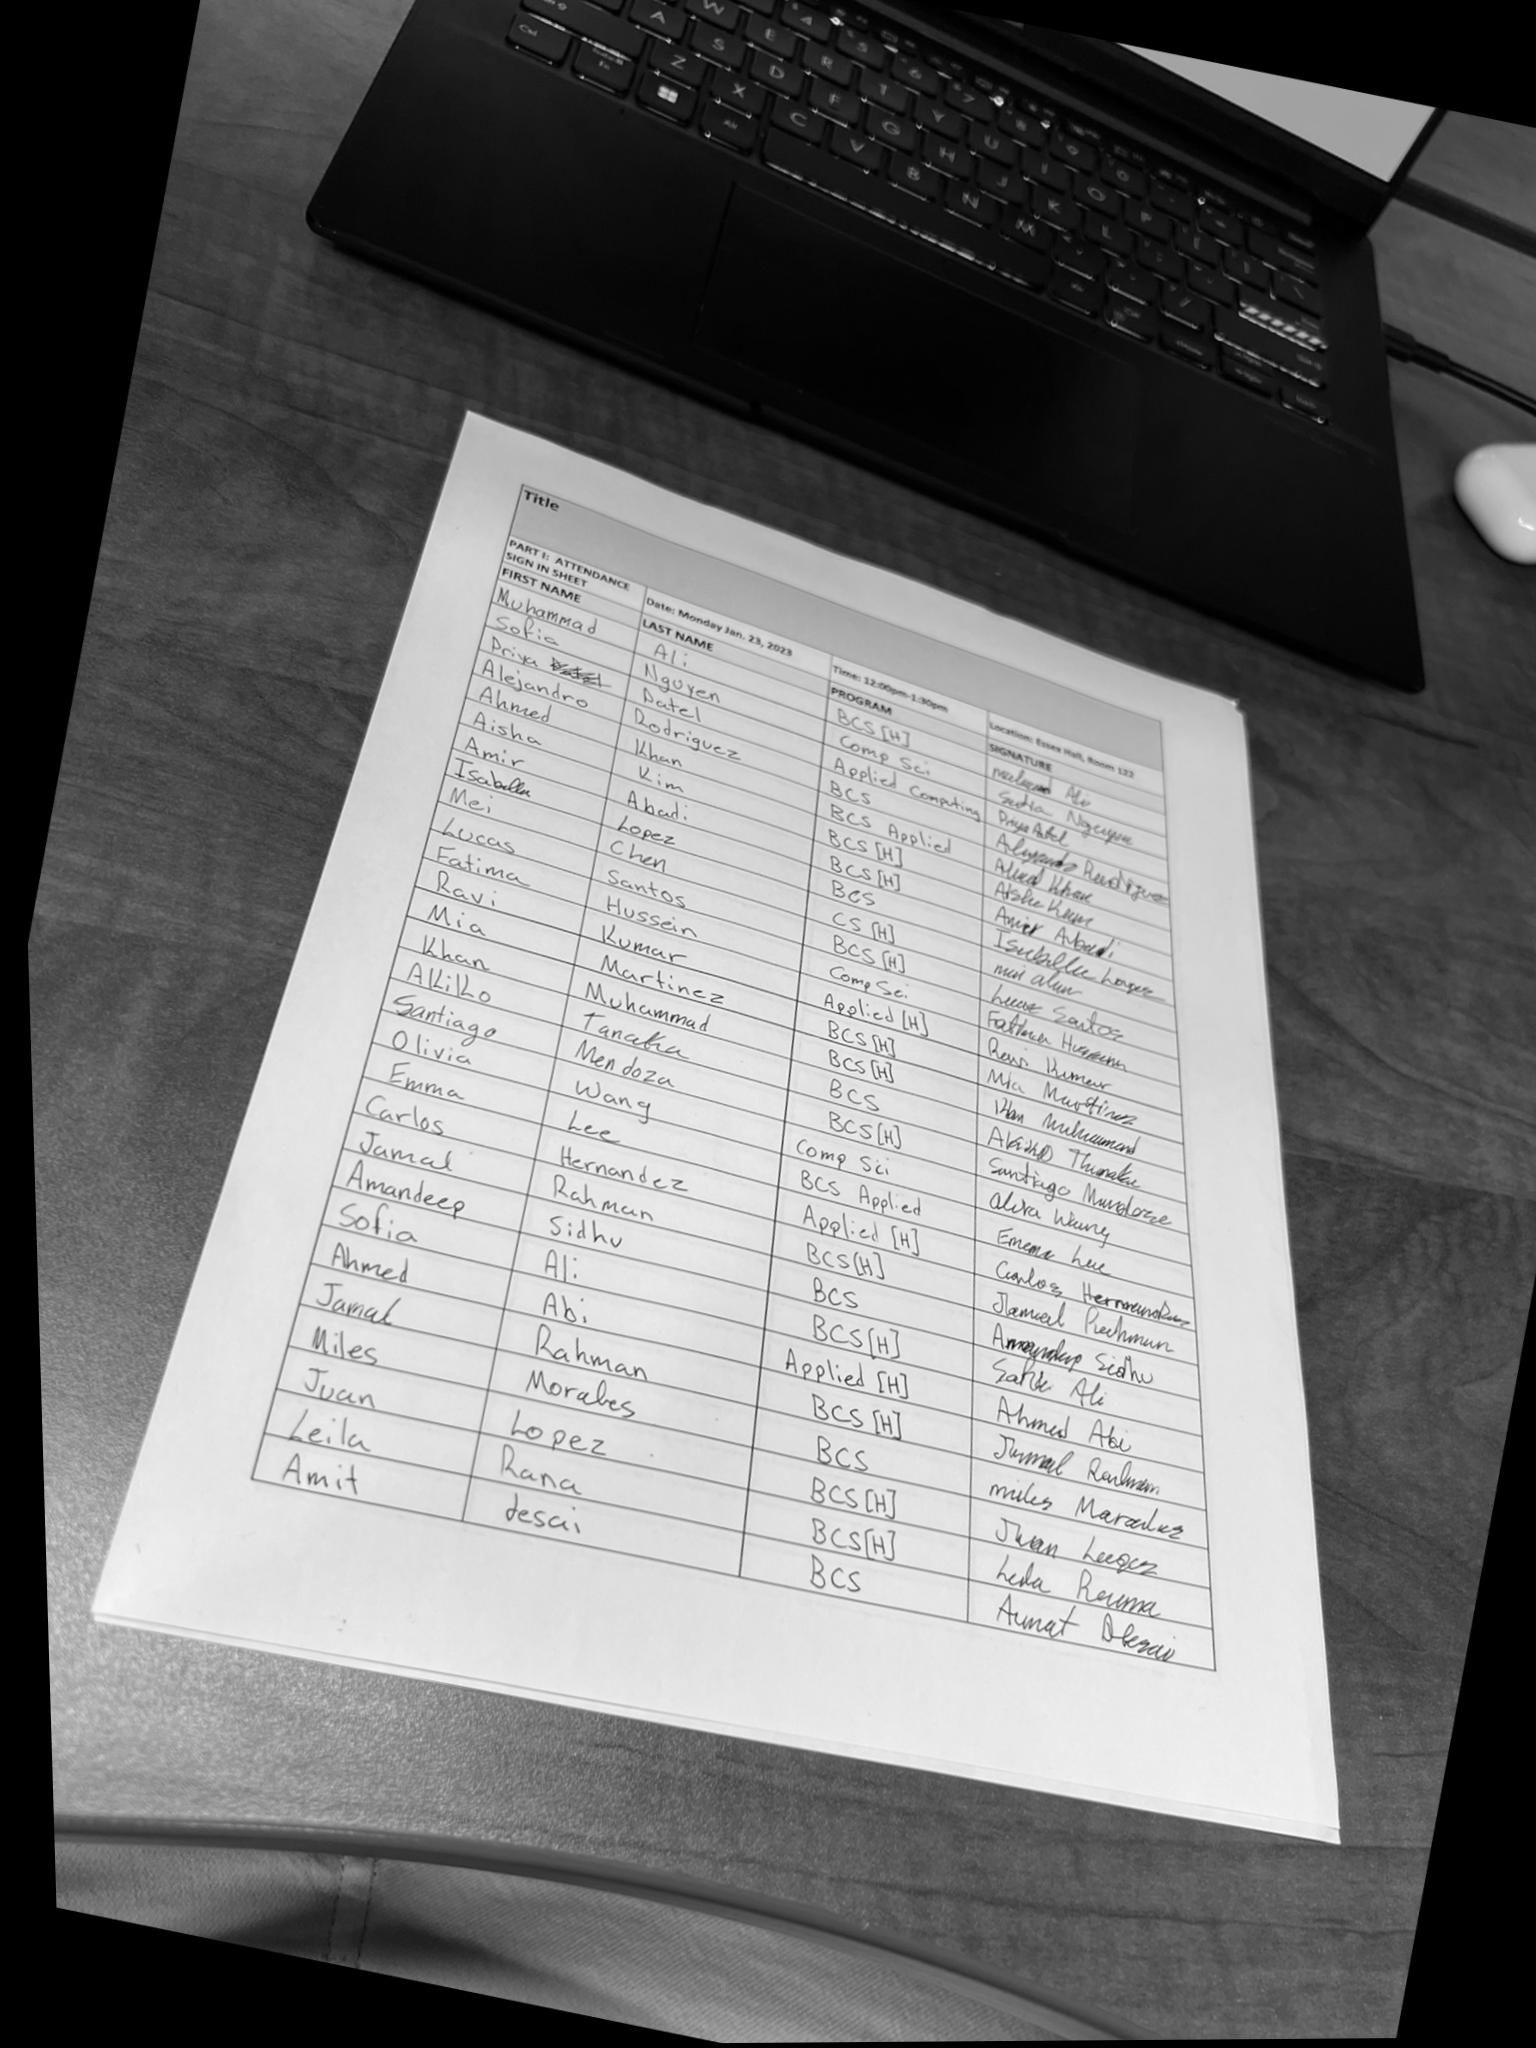 Title
PART I: ATTENDANCE SIGN IN SHEET Date: Monday Jan. 23, 2023 Time: 12:00pm-1:30pm Location: Essex Hall, Room 122
FIRST NAME LAST NAME PROGRAM SIGNATURE
Muhammad Ali BCS [H] Ali
Sofia Nguyen Comp Sci Sofia Nguyen
Priya Patel Applied Computing Priya Patel
Alejandro Rodriguez BCS Alejandro Rodriguez
Ahmed Khan BCS Applied Ahmed Khan
Aisha Kim BCS [H] Aisha Kim
Amir Abadi BCS [H] Amir Abadi
Isabella Lopez BCS Isabella Lopez
Mei Chen CS [H] mei
Lucas Santos BCS [H] Lucas Santos
Fatima Hussein Comp Sci Fatima Hussein
Ravi Kumar Applied [H] Ravi Kumar
Mia Martinez BCS [H] Mia Martinez
Khan Muhammad BCS [H] Khan Muhammad
Akiko Tanaka BCS Akiko Tanaka
Santiago Mendoza BCS [H] Santiago Mendoza
Olivia Wang Comp Sci Olivia Wang
Emma Lee BCS Applied Emma Lee
Carlos Hernandez Applied [H] Carlos Hernandez
Jamal Rahman BCS [H] Jamal Rahman
Amandeep Sidhu BCS Amandeep Sidhu
Sofia Ali BCS [H] Sofia Ali
Ahmed Abi Applied [H] Ahmed Abi
Jamal Rahman BCS [H] Jamal Rahman
Miles Morales BCS miles Morales
Juan Lopez BCS [H] Juan Lopez
Leila Rana BCS [H] Leila Rana
Amit desai BCS Amit Desai